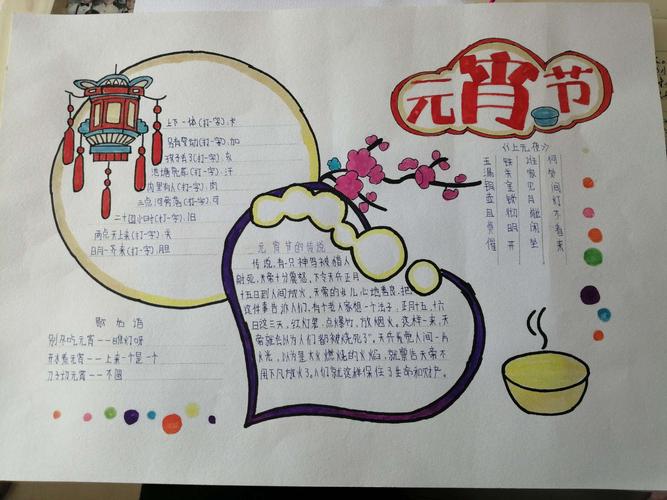 元宵节
《上元夜》
玉漏银壶且莫催
铁关金锁彻明开
谁家见月能闲坐
何处闻灯不看来
上下一体(打一字):卡
另有变动(打一字):加
孩子丢了(打一字):亥
池塘亮底(打一字):汗
内里有人(打一字):肉
三点河旁落(打一字):可
二十四小时(打一字):旧
两点天上来(打一字):关
日月一齐来(打一字):胆
元宵节的传说
传说,有一只神鸟被猎人
射死,天帝十分震怒、下令天兵正月
十五日到人间放火,天帝的女儿心地善良,把
这件事告诉人们,有个老人家想一个法子,正月十五,十六
日这三天,红灯笼、点爆竹、放烟火。这样一来,天
帝就会以为人们都被烧死了"。天兵看见人间一片
火光,以为是大火燃烧的火焰,就警告天帝不
用下凡放火了。人们就这样保住了生命和财产。
歇后语
别吹吃元宵——瞧灯呀
开水煮元宵——上来一个是一个
刀子切元宵——不圆